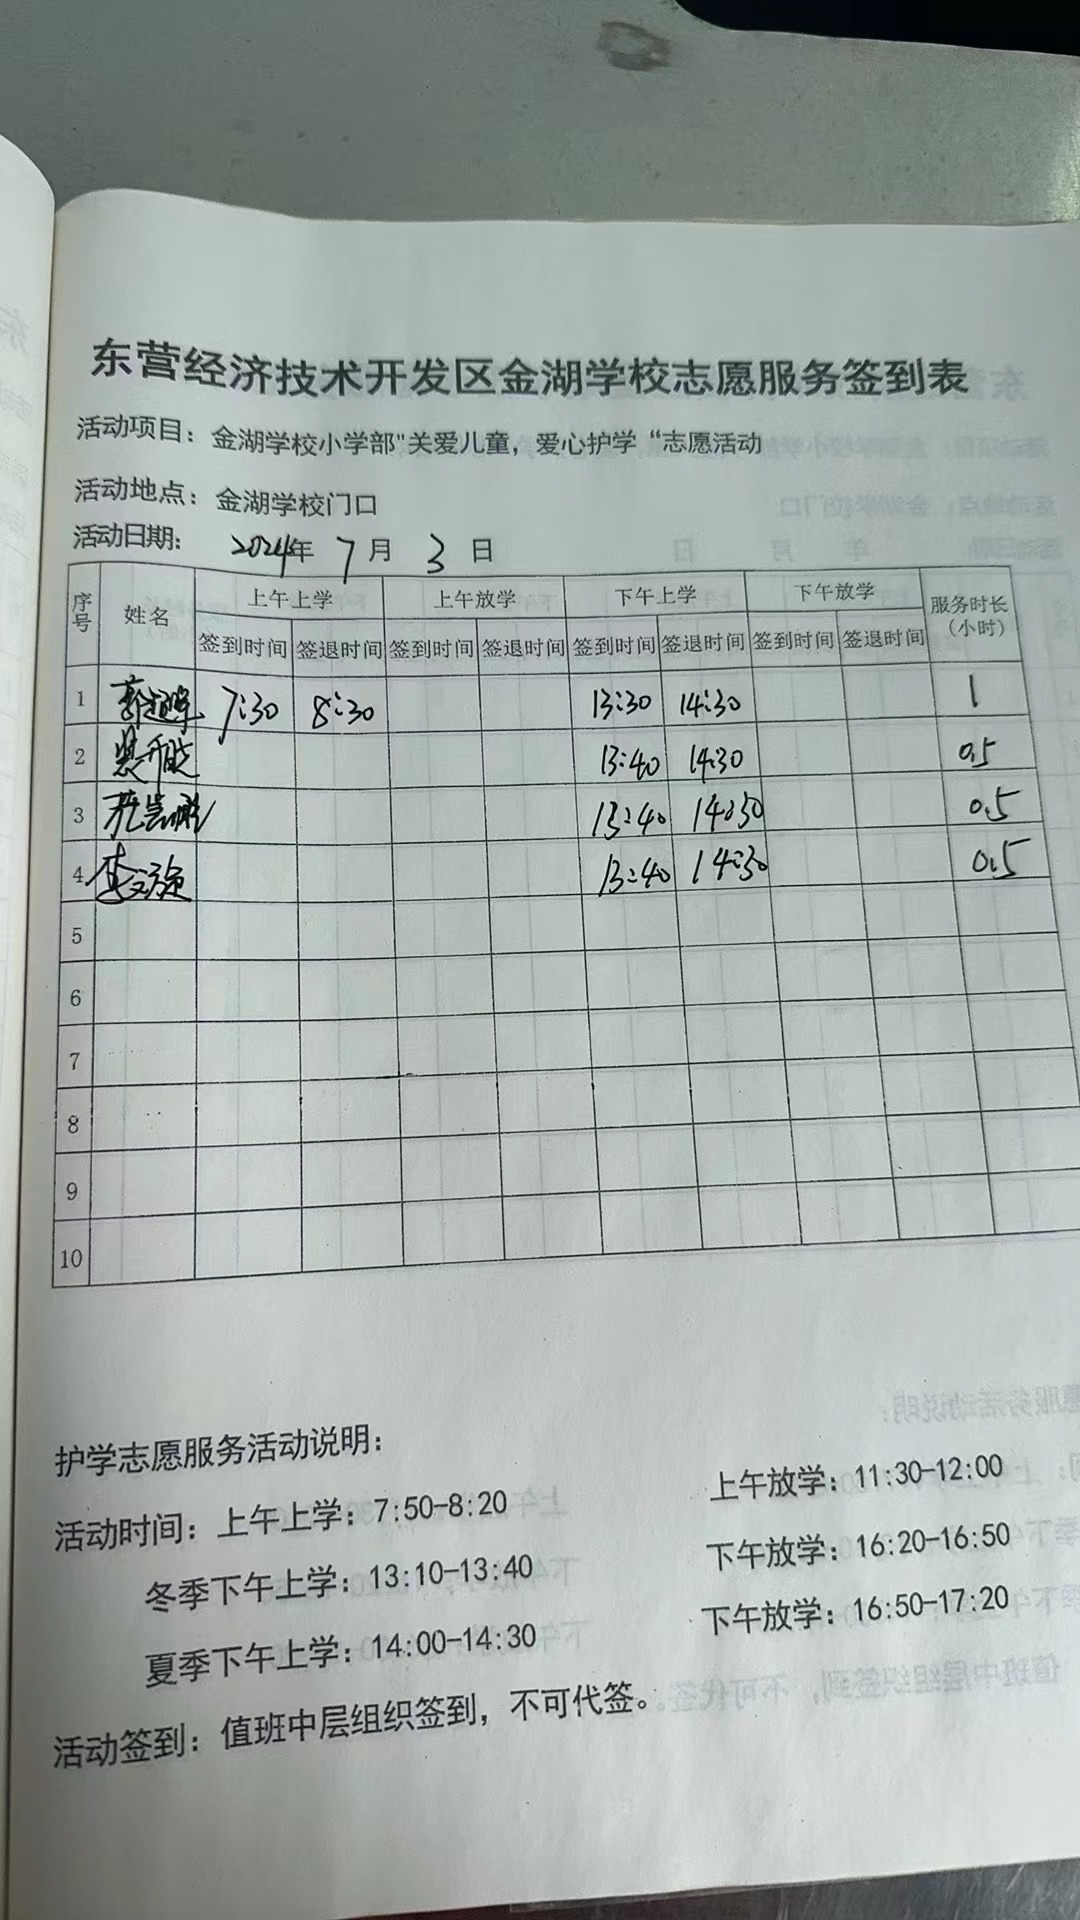 东营经济技术开发区金湖学校志愿服务签到表
活动项目：金湖学校小学部"关爱儿童，爱心护学“志愿活动
活动地点：金湖学校门口
活动日期： 2024年 7月 3日
序号 姓名 上午上学 上午放学 下午上学 下午放学 服务时长（小时）
签到时间 签退时间 签到时间 签退时间 签到时间 签退时间 签到时间 签退时间
1 7:30 8:30 13:30 14:30 1
2 13:40 14:30 0.5
3 13:40 14:30 0.5
4 13:40 14:30 0.5
5
6
7
8
9
10
护学志愿服务活动说明：
活动时间：上午上学：7:50-8:20 上午放学：11:30-12:00
冬季下午上学：13:10-13:40 下午放学：16:20-16:50
夏季下午上学：14:00-14:30 下午放学：16:50-17:20
活动签到：值班中层组织签到，不可代签。